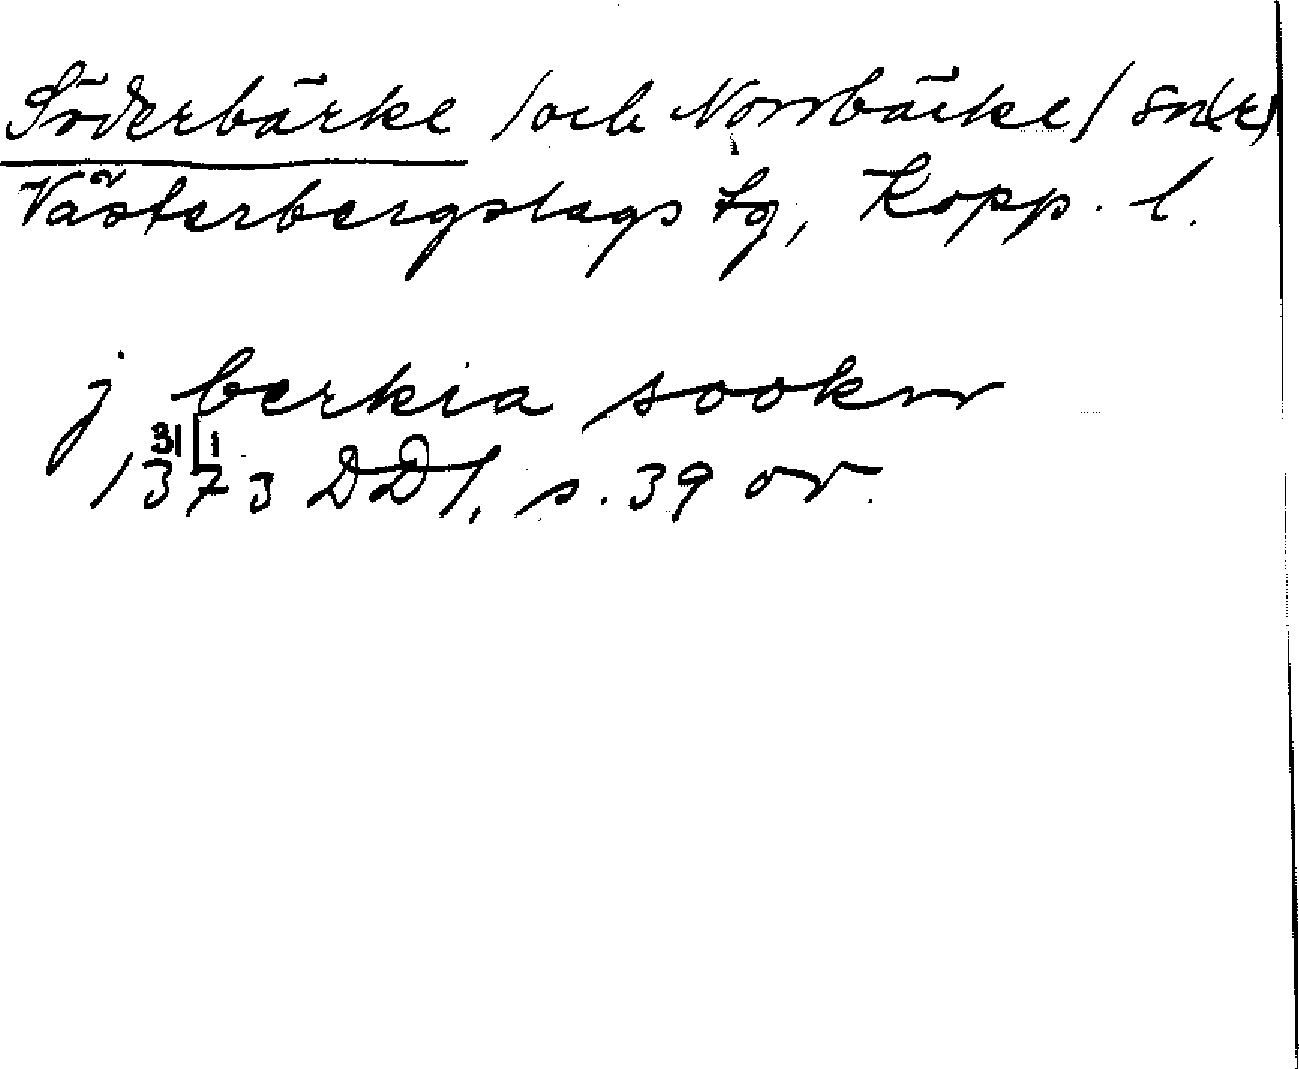 Söderbärke /och Norrbärke/ sn(r)
Västerbergslags tg, Kopp. l.
j berkia sookn
31 1
1373 DD1, s. 39 or.